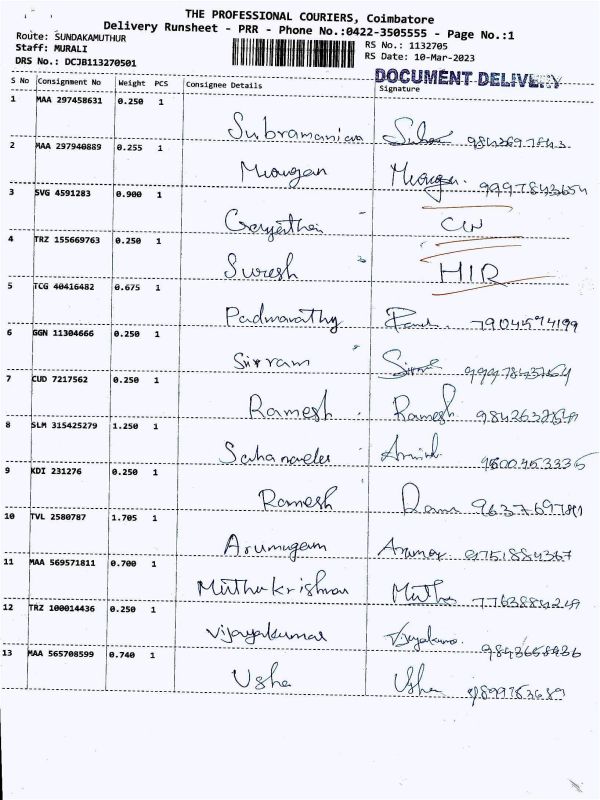 THE PROFESSIONAL COURIERS, Coimbatore
Delivery Runsheet - PRR - Phone No.:0422-3505555 - Page No.:1
Route: SUNDAKAMUTHUR
Staff: MURALI
DRS No.: DCJB113270501
RS No.: 1132705
RS Date: 10-Mar-2023
DOCUMENT DELIVERY
S No Consignment No Weight PCS Consignee Details Signature
1 MAA 297458631 0.250 1
Subramaniam
2 MAA 297940889 0.255 1
Murugan Murugan. 9997843654
3 SVG 4591283 0.900 1
Gayathri CN
4 TRZ 155669763 0.250 1
Suresh HIR
5 TCG 40416482 0.675 1
Padmavathy
6 GGN 11304666 0.250 1
Sivram
7 CUD 7217562 0.250 1
Ramesh Ramesh
8 SLM 315425279 1.250 1
Arvind 9500453335
9 KDI 231276 0.250 1
Ramesh
10 TVL 2580787 1.705 1
Arumugam 9751884367
11 MAA 569571811 0.700 1
Muthukrishnan Muthu
12 TRZ 100014436 0.250 1
Vijayakumar Vijayakumar 9843658436
13 MAA 565708599 0.740 1
Usha Usha 9899753689